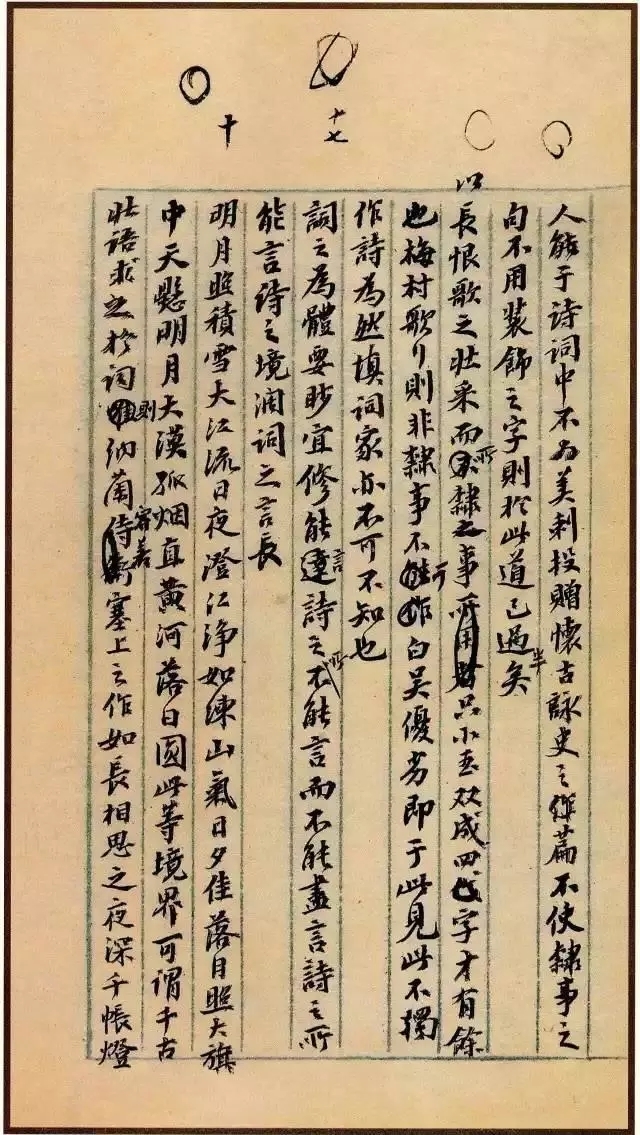 十七
十
人能于诗词中不为美刺投贈懷古詠史之作篇不使隸事之
句不用装飾之字則於此道已過半矣
以長恨歌之壯采而所隸之事只小玉双成四字才有餘
也梅村歌行則非隸事不可白吴優劣即于此見此不獨
作詩為然填詞家亦不可不知也
詞之為體要眇宜修能言詩之所不能言而不能盡言詩之所
能言詩之境阔詞之言長
明月照積雪大江流日夜澄江浄如練山氣日夕佳落日照大旗
中天懸明月大漠孤烟直黄河落日圆此等境界可謂千古
壮語求之於詞則納蘭容若塞上之作如長相思之夜深千帳燈